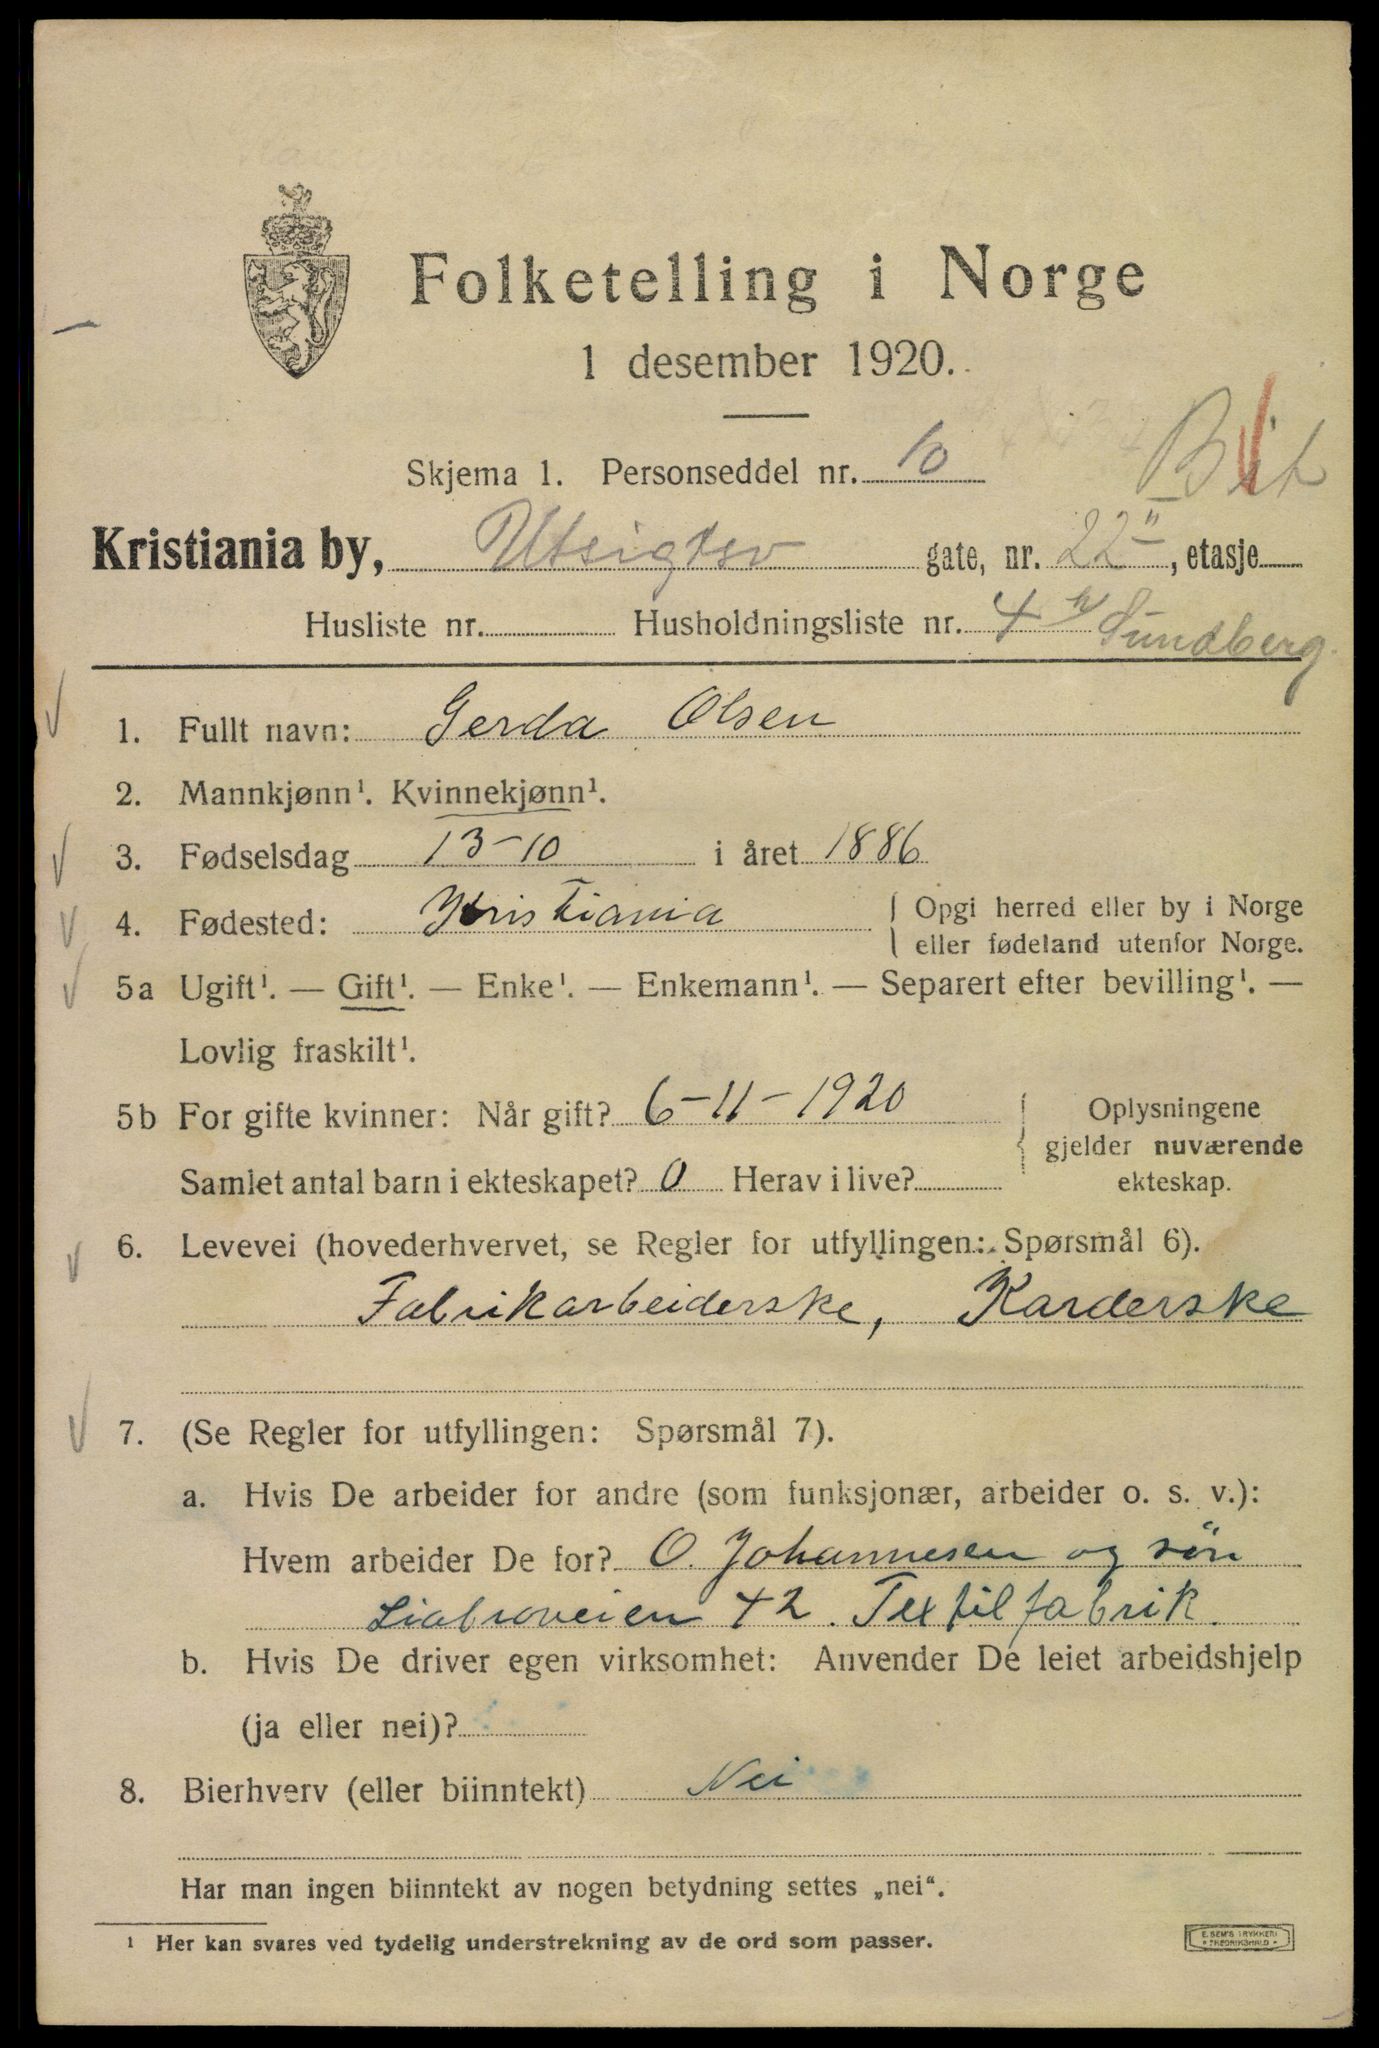 Folketelling i Norge
1 desember 1920.
Skjema 1. Personseddel nr. 10
Kristiania by, Utsigtsv gate, nr. 22 II, etasje
Husliste nr. Husholdningsliste nr. 4 Sundberg.
1. Fullt navn: Gerda Olsen
2. Mannkjønn¹. Kvinnekjønn¹.
3. Fødselsdag 13-10 i året 1886
4. Fødested: Kristiania { Opgi herred eller by i Norge
eller fødeland utenfor Norge.
5a Ugift¹. — Gift¹. — Enke¹. — Enkemann¹. — Separert efter bevilling¹. —
Lovlig fraskilt¹.
5b For gifte kvinner: Når gift? 6-11-1920 { Oplysningene
gjelder nuværende
Samlet antal barn i ekteskapet? 0 Herav i live? ekteskap.
6. Levevei (hovederhvervet, se Regler for utfyllingen: Spørsmål 6).
Fabrikarbeiderske, Karderske
7. (Se Regler for utfyllingen: Spørsmål 7).
a. Hvis De arbeider for andre (som funksjonær, arbeider o. s. v.):
Hvem arbeider De for? O. Johannesen og søn
Liabroveien 42. Textilfabrik.
b. Hvis De driver egen virksomhet: Anvender De leiet arbeidshjelp
(ja eller nei)?
8. Bierhverv (eller biinntekt) Nei
Har man ingen biinntekt av nogen betydning settes „nei“.
¹ Her kan svares ved tydelig understrekning av de ord som passer.
E. SEM'S TRYKKERI
• FREDRIKSHALD •